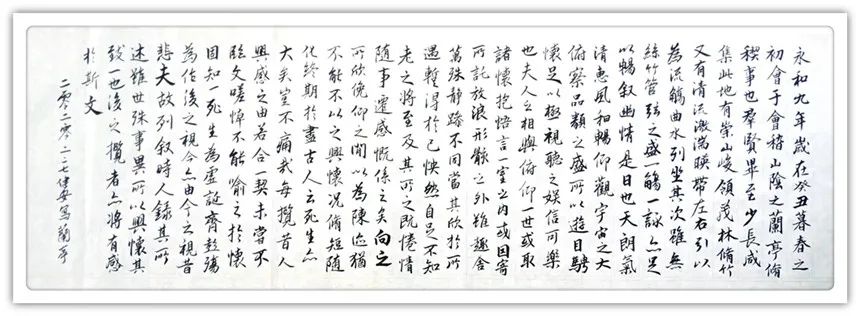 永和九年歲在癸丑暮春之
初會于會稽山陰之蘭亭脩
稧事也群賢畢至少長咸
集此地有崇山峻領茂林脩竹
又有清流激湍暎帶左右引以
為流觴曲水列坐其次雖無
絲竹管弦之盛一觴一詠亦足
以暢叙幽情是日也天朗氣
清惠風和暢仰觀宇宙之大
俯察品類之盛所以遊目騁
懷足以極視聽之娱信可樂
也夫人之相與俯仰一世或取
諸懷抱悟言一室之内或因寄
所託放浪形骸之外雖趣舍
萬殊靜躁不同當其欣於所
遇暫得於己怏然自足不知
老之將至及其所之既惓情
隨事遷感慨係之矣向之
所欣俛仰之間以為陳迹猶
不能不以之興懷況脩短隨
化終期於盡古人云死生亦
大矣豈不痛哉每攬昔人
興感之由若合一契未嘗不
臨文嗟悼不能喻之於懷
固知一死生為虛誕齊彭殤
為作後之視今亦由今之視昔
悲夫故列叙時人錄其所
述雖世殊事異所以興懷其
致一也後之攬者亦將有感
於斯文
二零二零.二.二七健安寫蘭亭